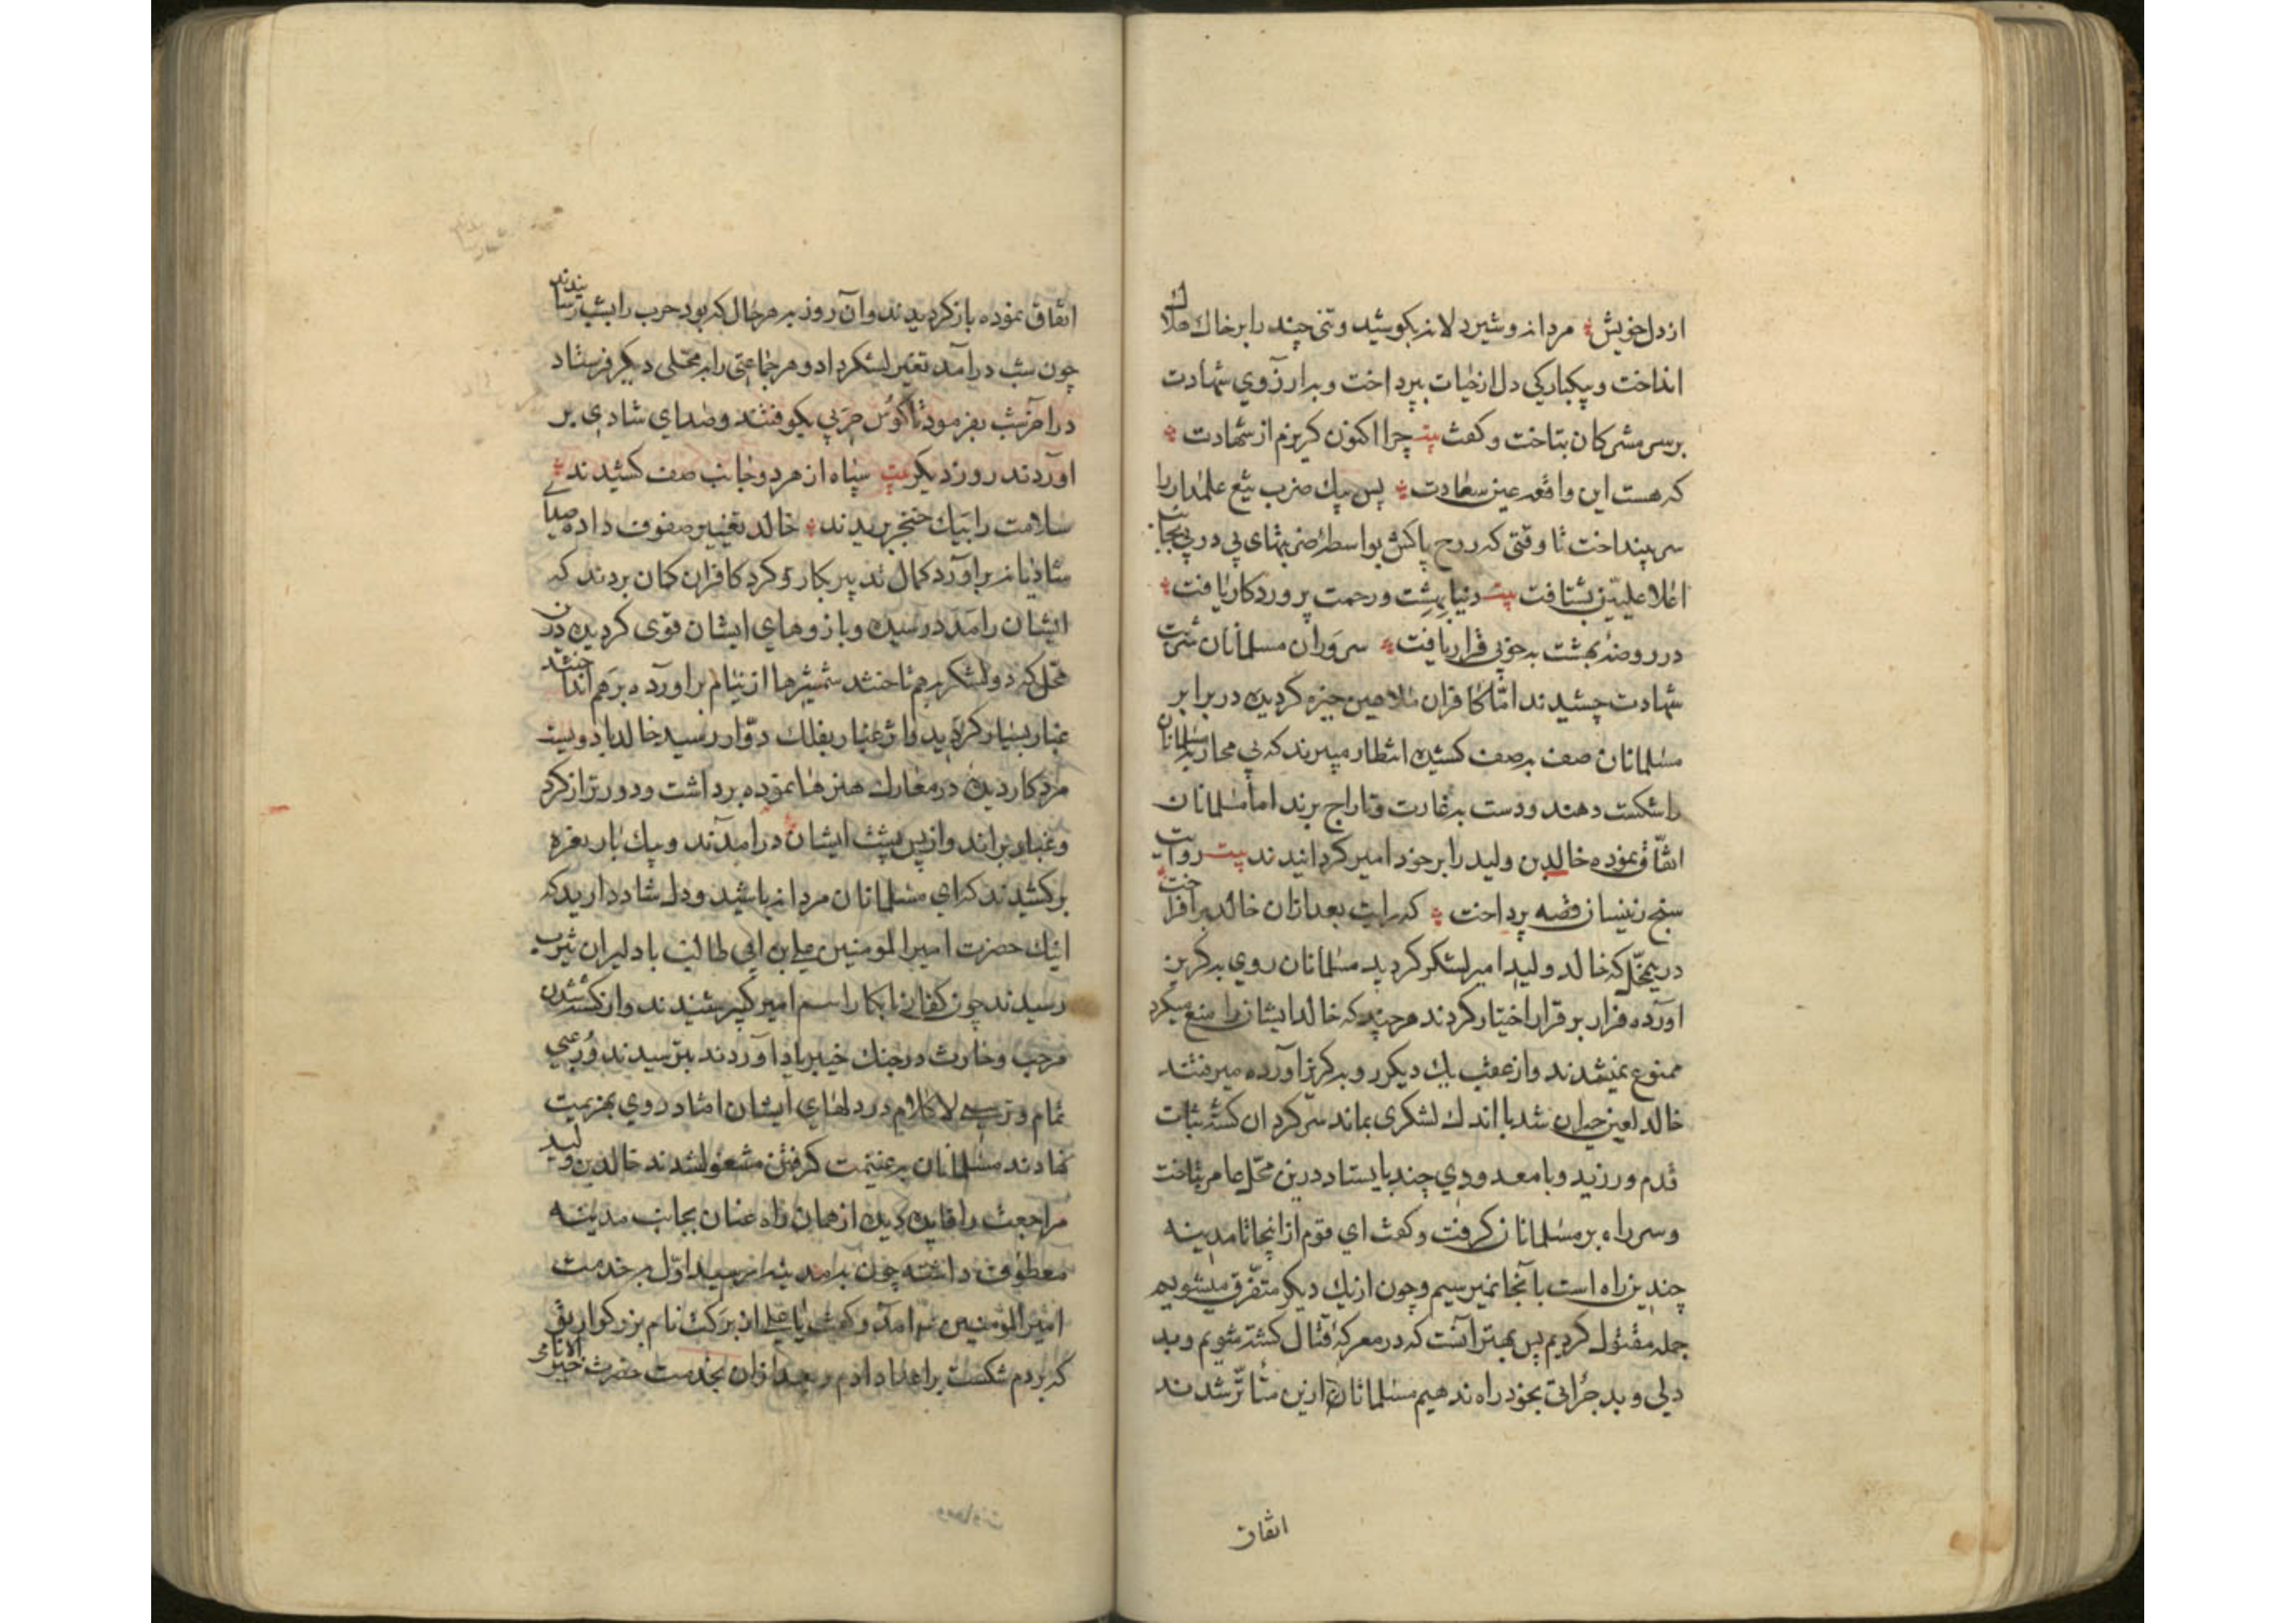 از دل خویش مردانه و شیردلانه بکوشید و تنی چند را بر خاك هلاك
انداخت و بیکبارکی دل از حیات بپرداخت و بر ارزوی شهادت
بر سر مشرکان بتاخت و کفت بیت چرا اکنون کریزم از شهادت
که هست این واقعه عین سعادت پس بیك ضرب تیغ علمدار را
سر بینداخت تا وقتی که روح پاکش بواسطهٔ ضربتهای پی در پی بجانب
اعلا علیین بشتافت بیت دنیا بهشت و رحمت پروردکار یافت
در روضهٔ بهشت به خوبی قرار یافت سروران مسلمانان شربت
شهادت چشیدند امّا کافران ملاعین چیره کردیده در برابر
مسلمانان صف بر صف کشیده انتظار میبرند که بی محاربه مسلمانان
را شکست دهند و دست به غارت و تاراج برند اما مسلمانان
اتفّاق نموده خالد بن ولید را بر خود امیر کردانیدند بیت روایت
سنج زینسان قصه پرداخت که رایت بعد ازان خالد بر افراخت
درینمحّل که خالد ولید امیر لشکر کردید مسلمانان روی به کریز
آورده فرار بر قرار اختیار کردند هر چند که خالد ایشان را منع میکرد
ممنوع نمیشدند و از عقب یك دیکر رو به کریز آورده میرفتند
خالد لعین حیران شد با اندك لشکری بماند سر کردان کشته ثبات
قدم ورزید و با معدودی چند بایستاد درین محّل عامر بتاخت
و سر راه بر مسلمانان کرفت و کفت ای قوم از انجا تا مدینه
چندین راه است با آنجا نمیرسیم و چون از یك دیکر متفّرق میشویم
جمله مقتول کردیم پس بهتر آنست که در معرکهٔ قتال کشته شویم و بد
دلی و بد جرأتی بخود راه ندهیم مسلمانان ازین متأثّر شدند
اتفاق
اتفاق نموده باز کردیدند و آن روز به هر حال که بود حرب را بشب رسانیدند
چون شب در آمد تغیّر لشکر داد و هر جماعتی را به محّلی دیکر فرستاد
در آخر شب بفرمود تا کوس حربی بکوفتند و صدای شادی بر
اوردند روز دیکر بیت سپاه از هر دو جانب صف کشیدند
سلامت را بیك خنجر بریدند خالد تغییر صفوف داده صدای
شادیانه بر اورد کمال تدبیر بکار و کرد کافران کمان بردند که
ایشان را مدد رسیده و بازوهای ایشان قوی کردیده دران
محّل که دو لشکر بهم تاختند شمشیرها از نیام بر آورده بر هم انداختند
غبار بسیار کردید و اثر غبار بفلك دوّار رسید خالد با دویست
مرد کار دیده در معارك هنرها نموده برداشت و دورتر از کرد
و غبار براند و از پس پشت ایشان در امدند و بیك بار نعره
بر کشیدند که ای مسلمانان مردانه باشید و دل شاد دارید که
اینك حضرت امیر المومنین علی بن ابی طالب با دلیران یثرب
رسیدند چون کفار نابکار اسم امیر کبیر شنیدند و از کشته شدن
مرحب و حارث در جنك خیبر یاد آوردند بترسیدند و رعبی
تمام و ترسی لا کلام در دلهای ایشان افتاد روی بهزیمت
نهادند مسلمانان به غنیمت کرفتن مشغول شدند خالد بن ولید
مراجعت را فایده دیده از همان راه عنان بجانب مدینه
معطوف داشته چون به مدینه رسید اوّل به خدمت
امیر المومنین آمد و کفت یا علی از برکت نام بزرکوار تو
که بردم شکست بر اعدا دادم و بعد ازان بخدمت حضرت خیر الانامی